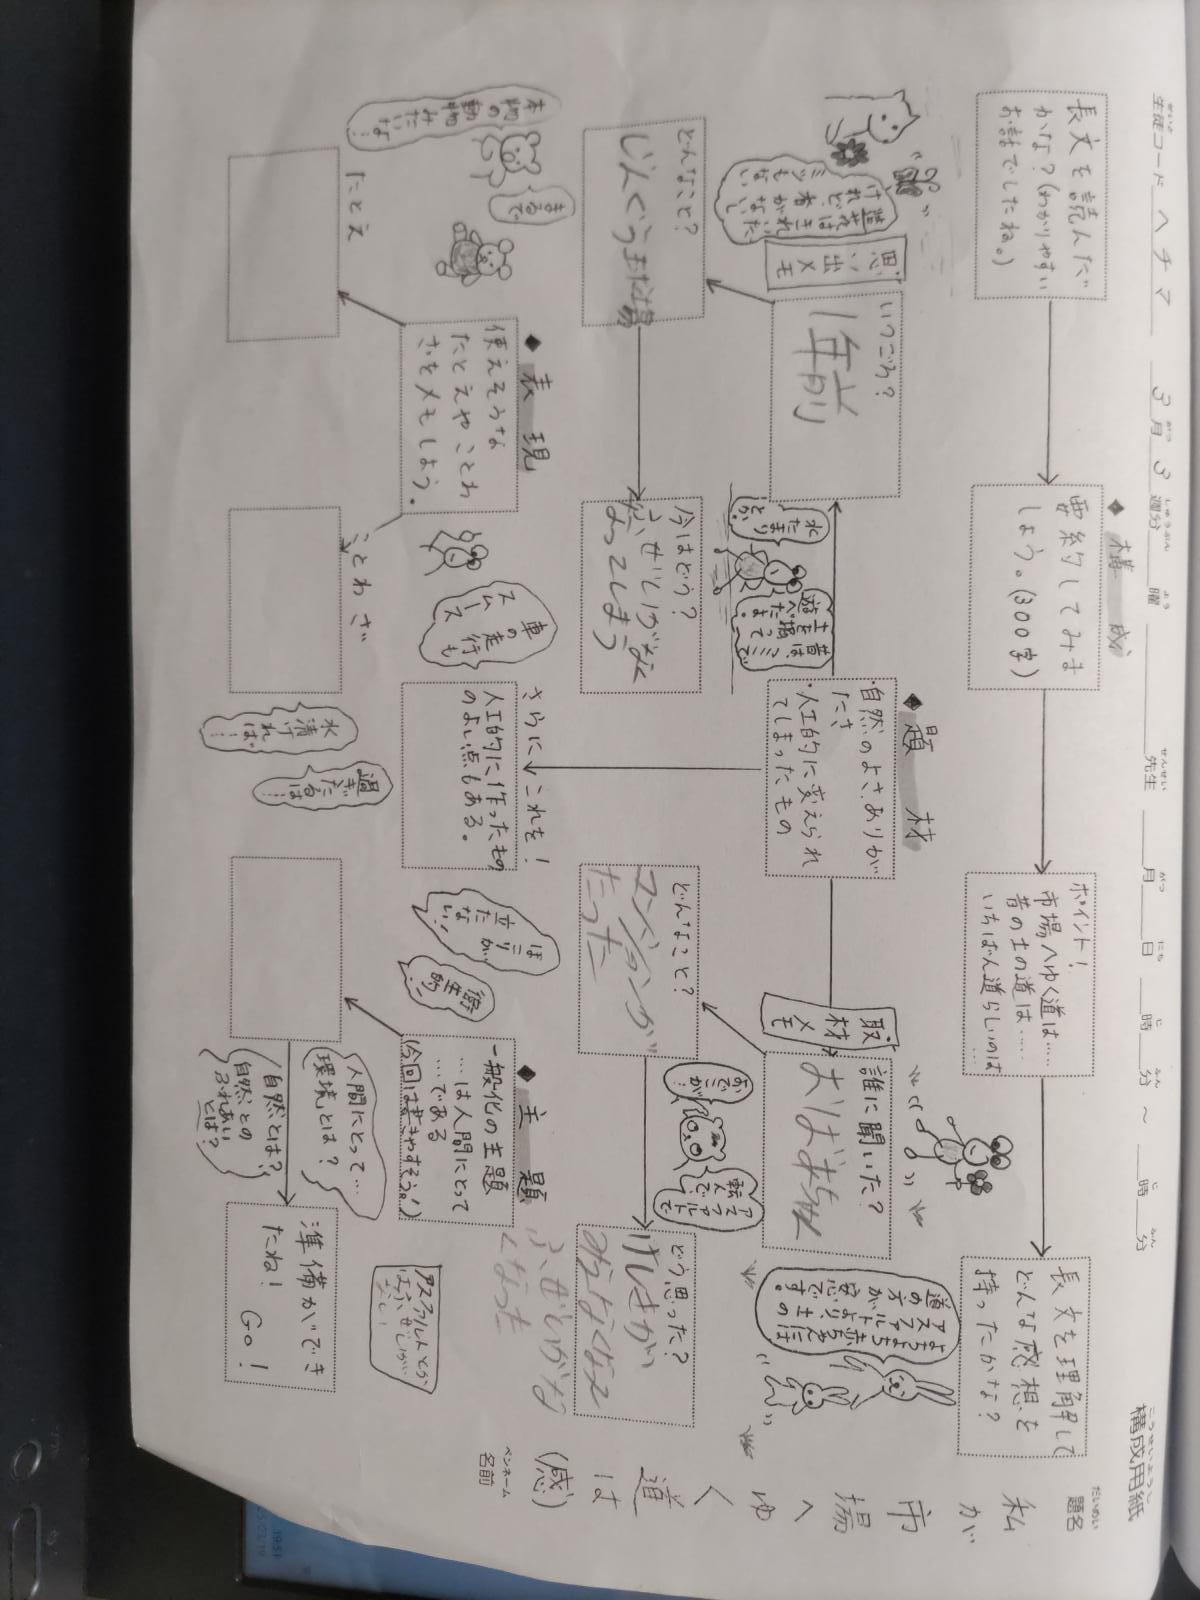 構成用紙
こうせいようし
生徒コード ヘチマ 3月3週分 曜 先生 月 日 時 分 ～ 時 分
題名
だいめい
私が
市場へ
ゆく
道は
(感)
名前
ペンネーム
長文を読んだ
かな？(わかりやすい
お話でしたね。)
◆構成
要約してみま
しょう。(300字)
ポイント！
市場へゆく道は……
昔の土の道は……
いちばん道らしいのは
……
長文を理解して
どんな感想を
持ったかな？
◆題材
・自然のよさ、ありが
たさ
・人工的に変えられ
てしまったもの
思い出メモ
いつごろ？
1年前
造花は生か
けれど、
ミツもない
どんなこと？
じんぐうまた場
水たまり
とか
昔は、ミミで
土を掘って
遊べたよ
今はどう？
ふぜいがなく
なってしまう
取材メモ
誰に聞いた？
おばあちゃん
おでこが！
アスファルトで
転んで、
よちよち赤ちゃんには
アスファルトより、土の
道の方が安心です。
どんなこと？
マンションが
たった
どう思った？
けしきが
みえなくなる
ふぜいがな
くなった
さらに これを！
人工的に作ったもの
のよい点もある。
車の走行も
スムーズ
ほこりが
立たない！
衛生的！
◆表現
使えそうな
たとえやことわ
ざをメモしよう。
まるで
本物の動物みたいな…！
たとえ
ことわざ
水清ければ…！
過ぎたるは……
◆主題
一般化の主題
…は人間にとって
…である
(今回は書きやすそう。！)
人間にとって…
環境とは？
自然とは？
自然との
ふれあい
とは？
準備ができ
たね！ GO！